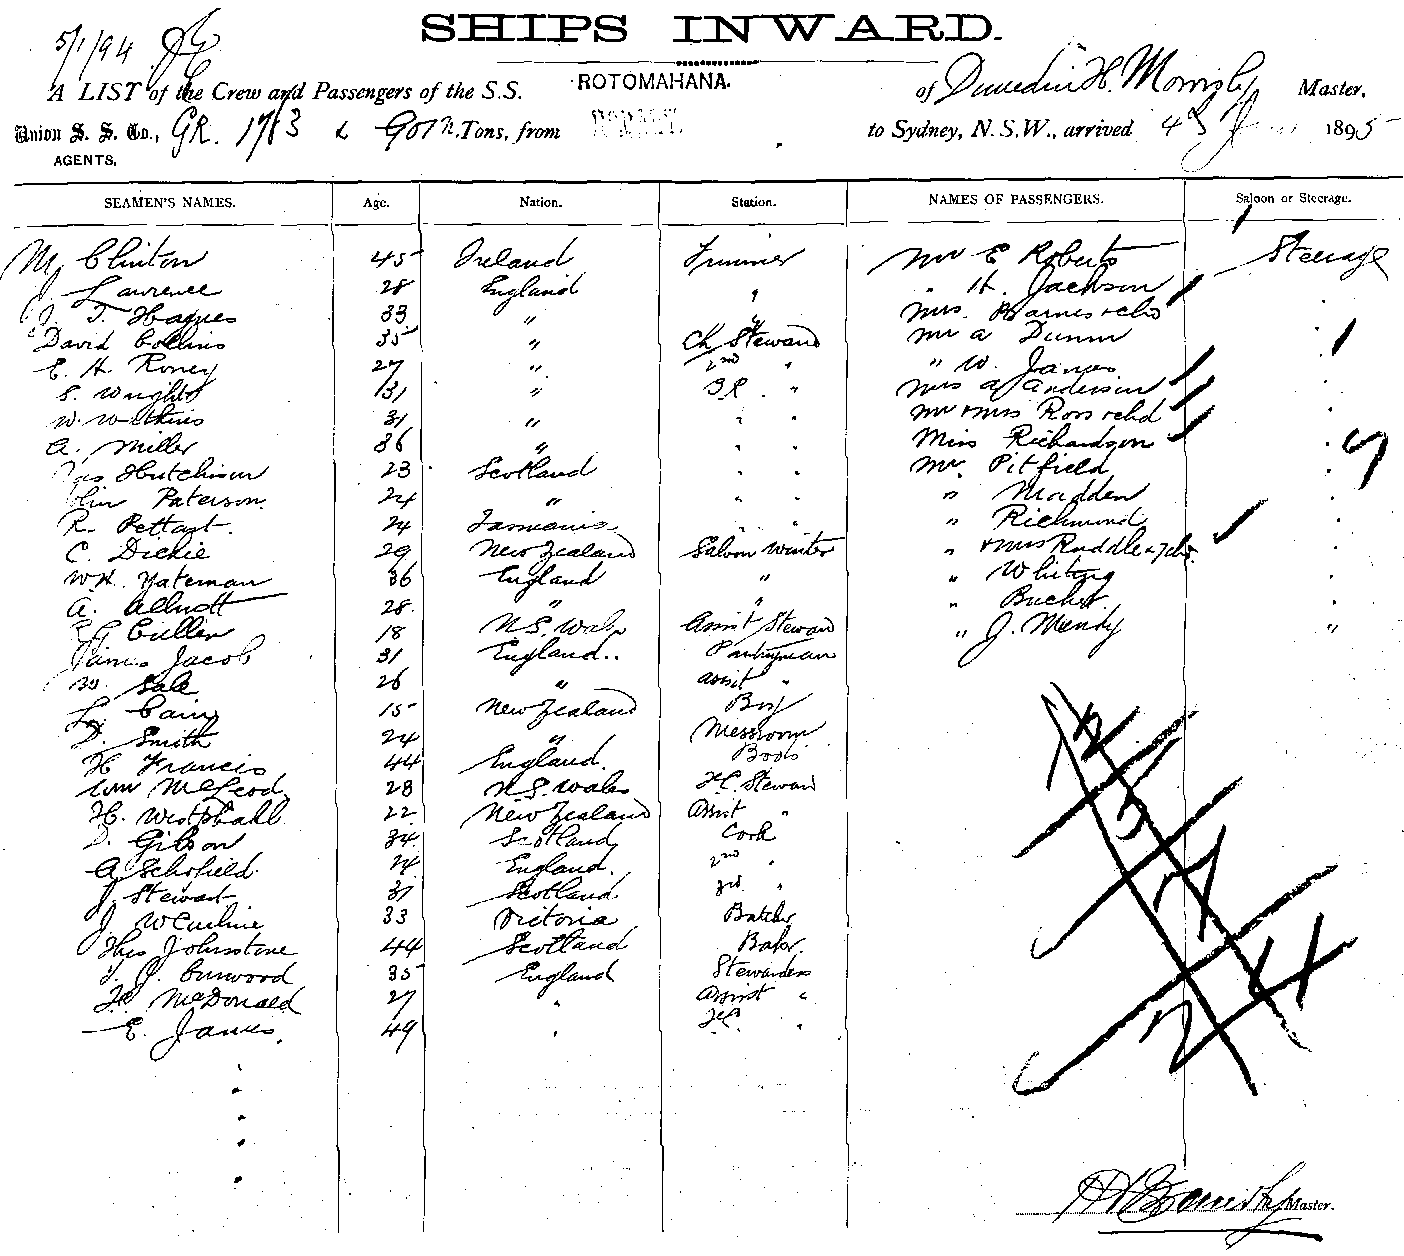 SHIPS INWARD.
5/1/94
A LIST of the Crew and Passengers of the S.S. ROTOMAHANA. of Dunedin H. Master.
Union S. S. Co., GR. 1763 & Tons, from HOBART. to Sydney, N.S.W., arrived 1895
AGENTS.
SEAMEN'S NAMES. Age. Nation. Station. NAMES OF PASSENGERS. Saloon or Steerage.
M Clinton 45 Ireland Trimmer Mr E Roberts Steerage
J Lawrence 28 England " " H. Jackson
J. T. Hagues 33 " " Mrs. Barnes
David Collins 35 " Ch Steward Mr A Dunn
E. H. Roney 27 " 2nd " " W. James
S. Wright 31 " " Mrs A Anderson
W. Watkins 31 " " " Mr & Mrs Ross & chd
A. Miller 36 " " " Miss Richardson
Hutchison 23 Scotland " " Mr. Pitfield
Paterson. 24 " " " " Madden
R. 24 Tasmania " " " Richmond
C. Dickie 29 New Zealand Saloon Winter " & Mrs Ruddle
W.H. Yateman 36 England " " Whiting
A. 28 " " "
Cullen 18 N.S. Wales Assist Steward " J. Mandy
James Jacob 31 England Pantryman
W. Sale 26 " Assist "
Cairns 15 New Zealand Boy
D. Smith 24 " Messroom
H Francis 44 England. Boots
Wm McLeod 28 N.S. Wales F.C. Steward
H. Westphall 22 New Zealand Assist "
D. Gibson 34 Scotland Cook
A Schofield 24 England. 2nd "
J Stewart 31 Scotland 3rd "
J. 33 Victoria Butcher
Thos Johnstone 44 Scotland Baker
T. J. Curwood 35 England Stewardess
McDonald 27 " Assist "
E. James. 49 " "
12
5
17
7
Master.